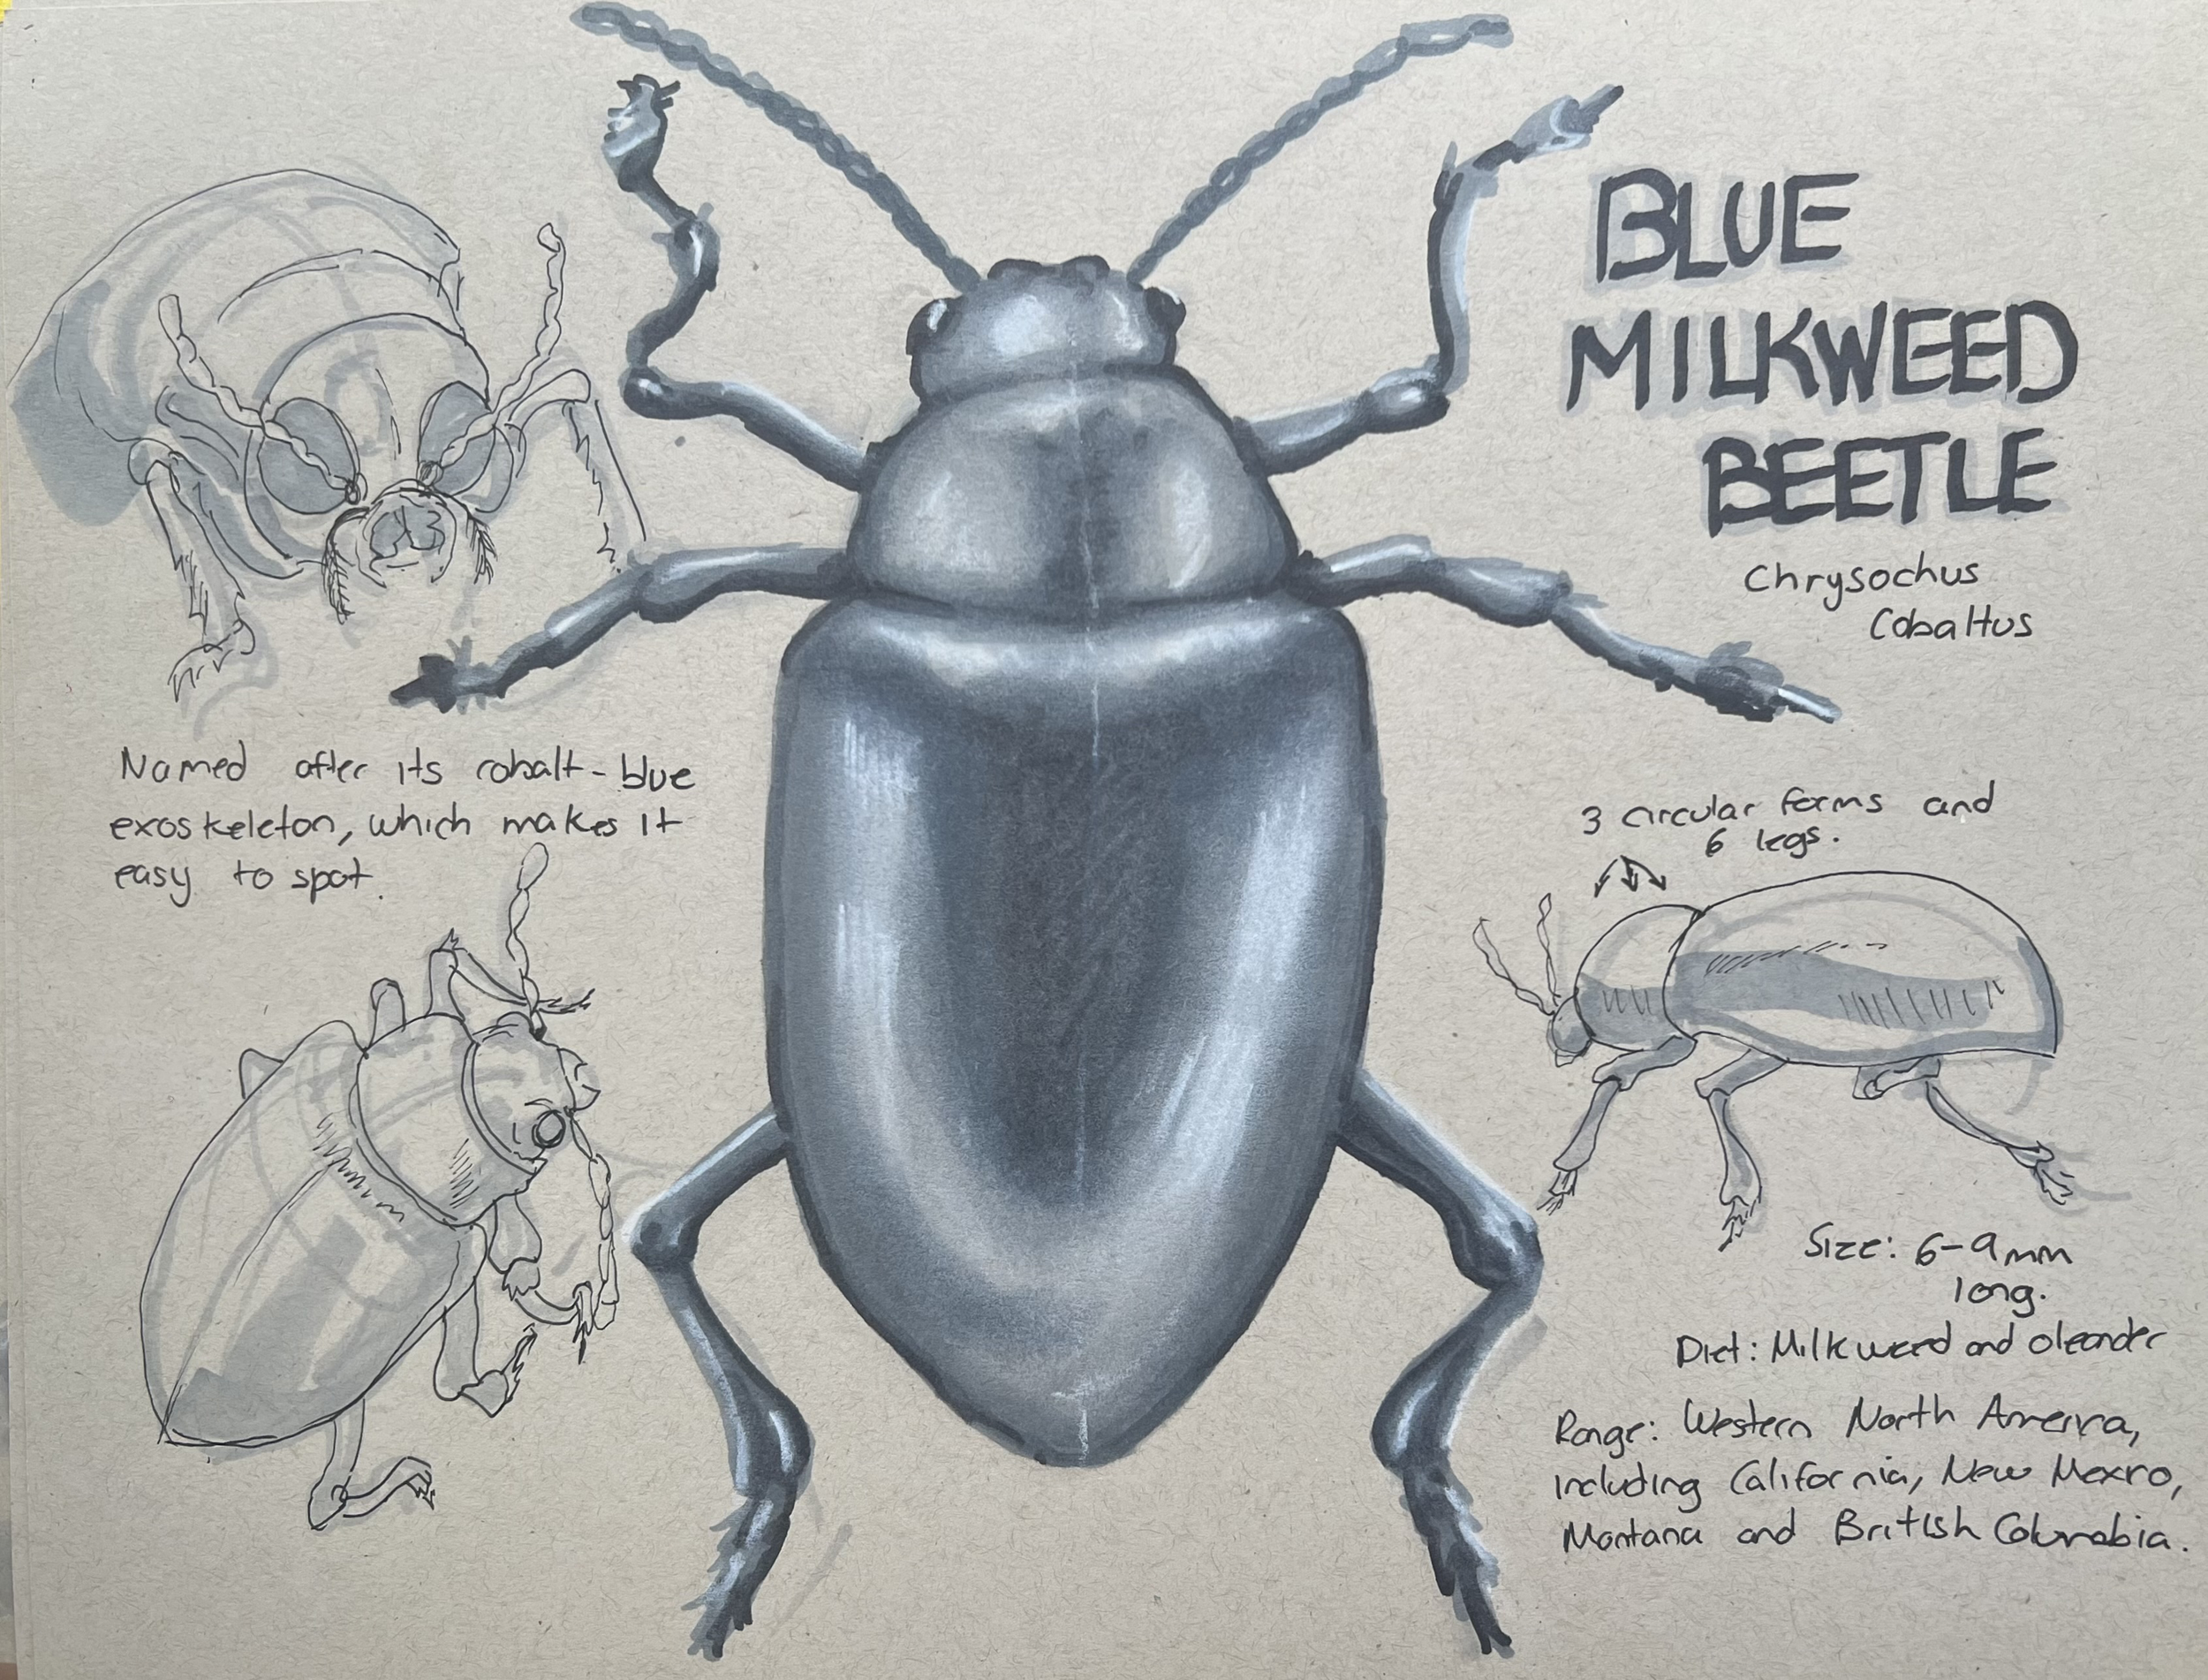 BLUE
MILKWEED
BEETLE
Chrysochus
Cobaltus
Named after its cobalt-blue
exoskeleton, which makes it
easy to spot.
3 circular forms and
6 legs.
Size: 6-9mm
long.
Diet: Milkweed and oleander
Range: Western North America,
including California, New Mexico,
Montana and British Columbia.